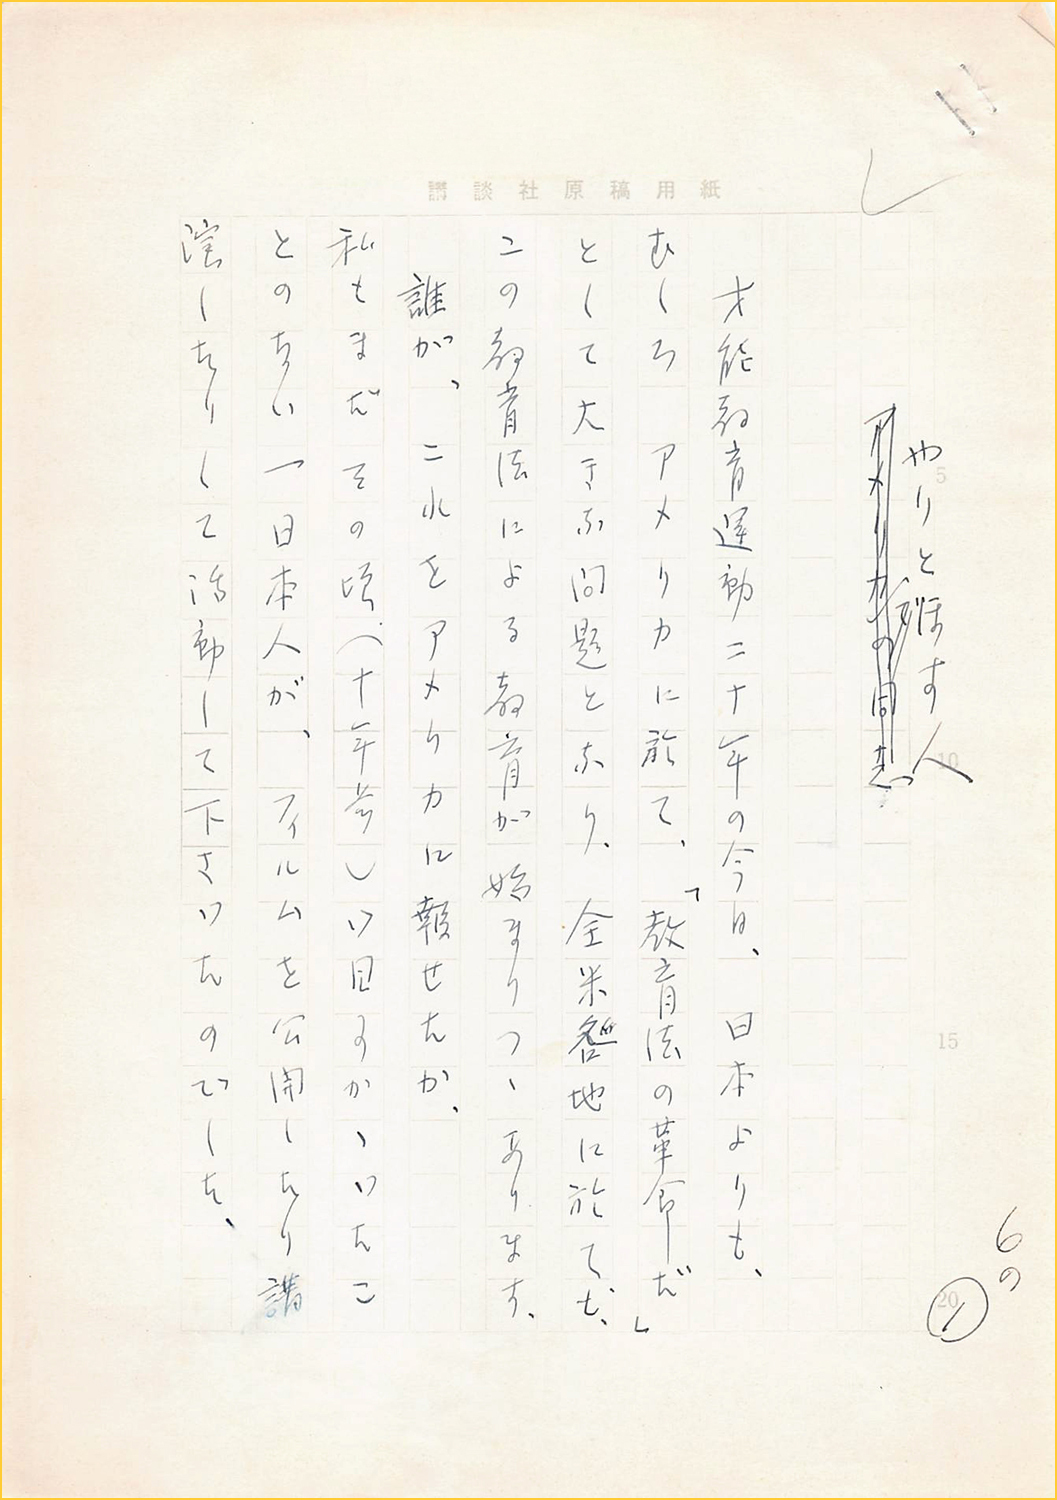 講談社原稿用紙
やりと殘す人
アメリカの同志
才能教育運動二十年の今日、日本よりも、
むしろ アメリカに於て、「教育法の革命だ」
として大きな問題となり、全米各地に於ても、
この教育法による教育が始まりつゝあります。
誰が、これをアメリカに報せたか、
私もまだその頃(十年前)いお目にかゝったこ
とのない一日本人が、フィルムを公開したり講
演したりして活動して下さったのでした、
6の
1
5
10
15
20